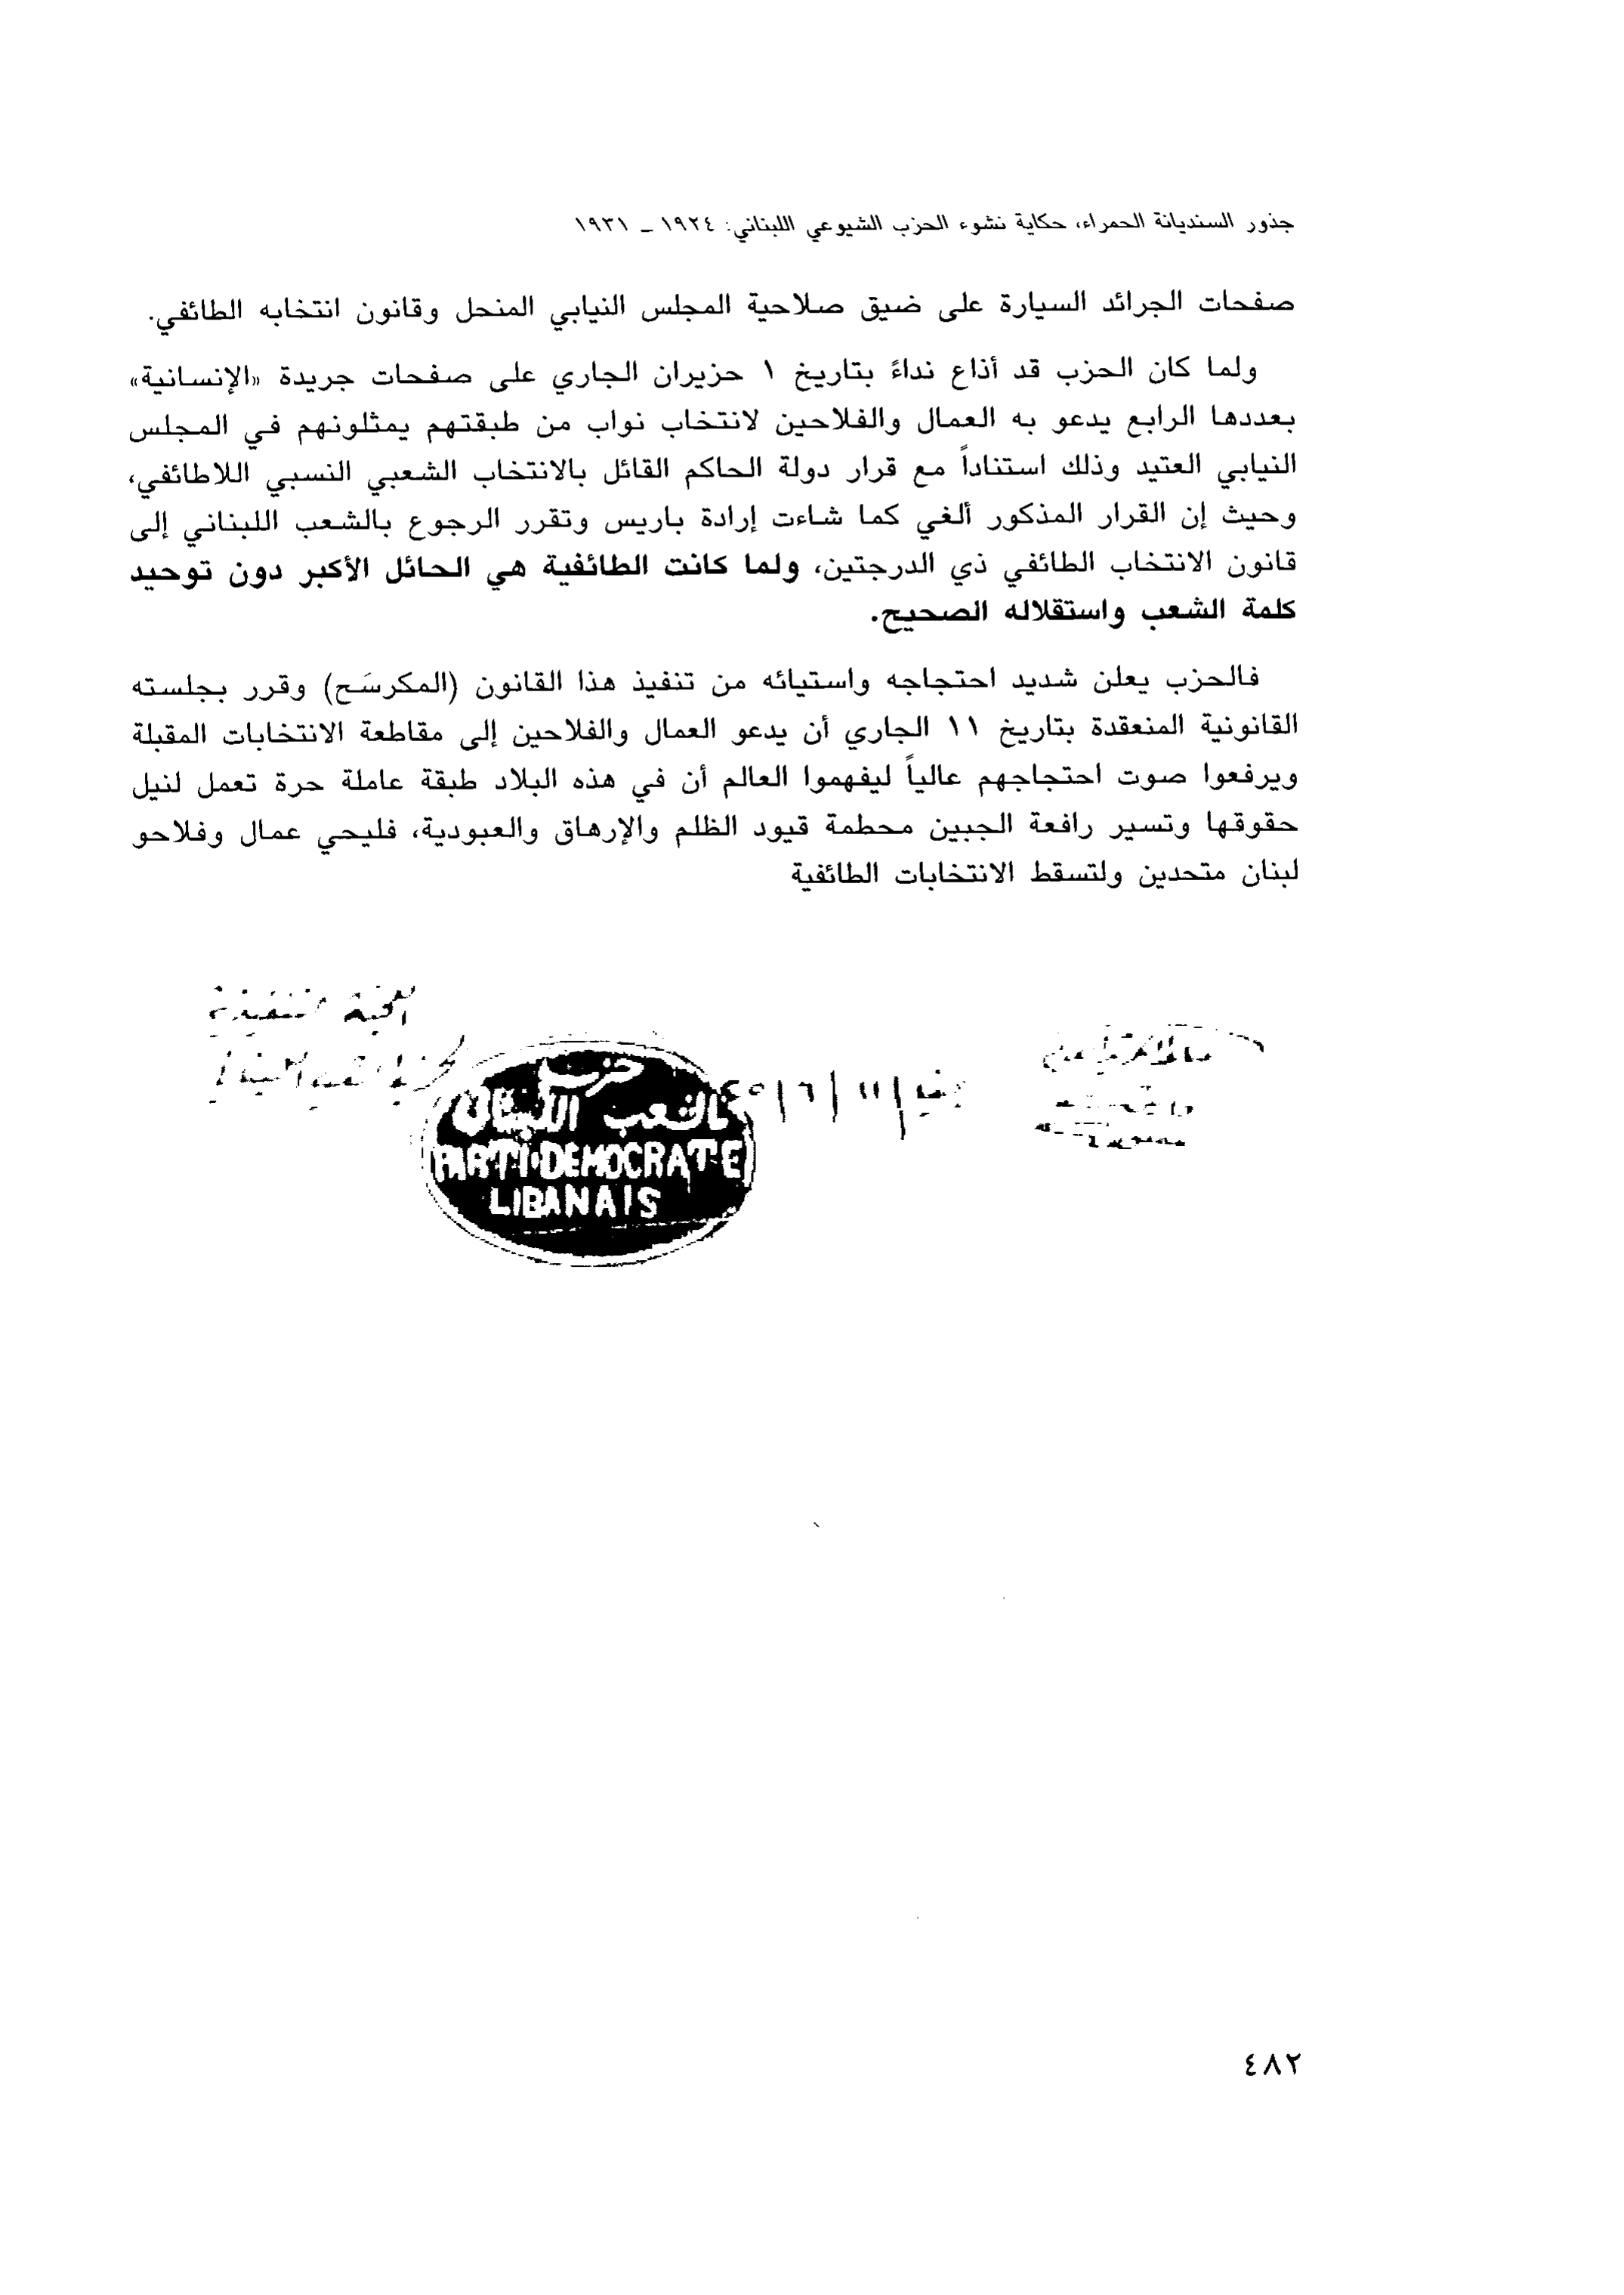 جذور السنديانة الحمراء، حكاية نشوء الحزب الشيوعي اللبناني: ١٩٢٤ – ١٩٣١
صفحات الجرائد السيارة على ضيق صلاحية المجلس النيابي المنحل وقانون انتخابه الطائفي.
ولما كان الحزب قد أذاع نداءً بتاريخ ١ حزيران الجاري على صفحات جريدة «الإنسانية»
بعددها الرابع يدعو به العمال والفلاحين لانتخاب نواب من طبقتهم يمثلونهم في المجلس
النيابي العتيد وذلك استناداً مع قرار دولة الحاكم القائل بالانتخاب الشعبي النسبي اللاطائفي،
وحيث إن القرار المذكور ألغي كما شاءت إرادة باريس وتقرر الرجوع بالشعب اللبناني إلى
قانون الانتخاب الطائفي ذي الدرجتين، ولما كانت الطائفية هي الحائل الأكبر دون توحيد
كلمة الشعب واستقلاله الصحيح.
فالحزب يعلن شديد احتجاجه واستيائه من تنفيذ هذا القانون (المكرسَح) وقرر بجلسته
القانونية المنعقدة بتاريخ ١١ الجاري أن يدعو العمال والفلاحين إلى مقاطعة الانتخابات المقبلة
ويرفعوا صوت احتجاجهم عالياً ليفهموا العالم أن في هذه البلاد طبقة عاملة حرة تعمل لنيل
حقوقها وتسير رافعة الجبين محطمة قيود الظلم والإرهاق والعبودية، فليحي عمال وفلاحو
لبنان متحدين ولتسقط الانتخابات الطائفية
اللجنة التنفيذية
حزب
الشعب اللبناني
PARTI·DEMOCRATE
LIBANAIS
٤٨٢